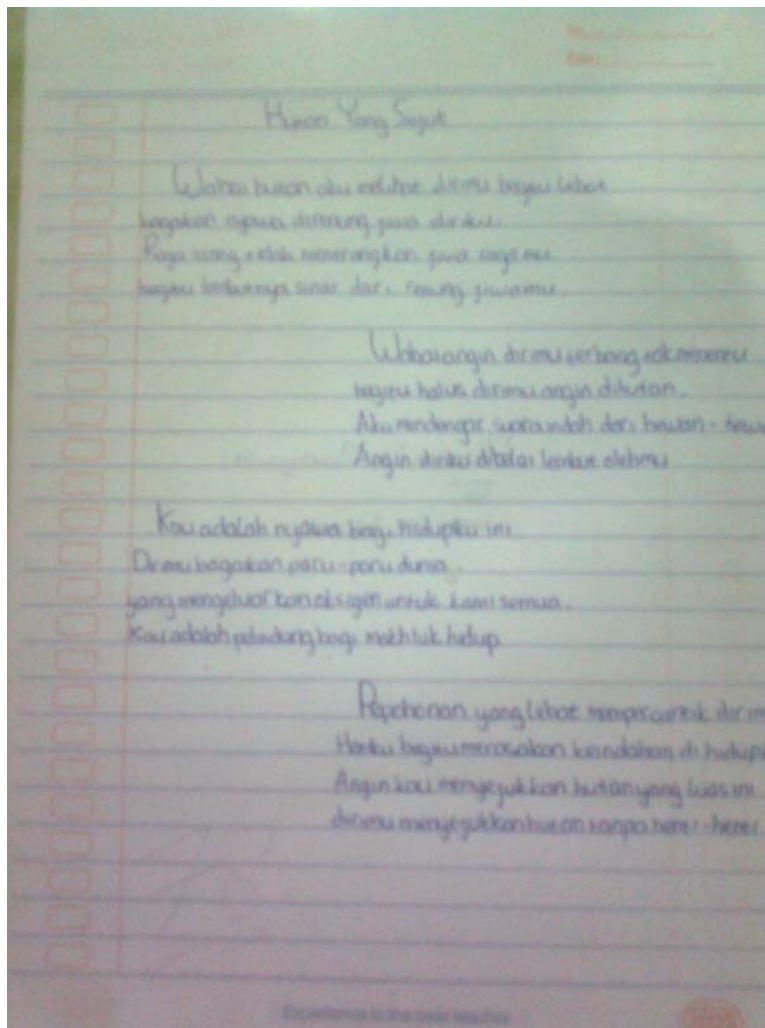 No
Date
Hutan Yang Sejut
Wahai hutan aku melihat dirimu begitu lebat
bagaikan nyawa direnung jiwa diriku.
Raja siang telah menerangkan jiwa ragamu
begitu lembutnya sinar dari renung jiwamu.
Wahai angin dirimu terbang tak menentu
begitu halus dirimu angin dihutan.
Aku mendengar suara indah dari hewan-hewa
Angin diriku dibelai lembut olehmu
Kau adalah nyawa bagi hidupku ini
Dirimu bagaikan paru-paru dunia
yang mengeluarkan oksigen untuk kami semua.
Kau adalah pelindung bagi makhluk hidup
Pepohonan yang lebat mempercantik dirim
Hatiku begitu merasakan keindahan di hidup
Angin kau menyejukkan hutan yang luas ini
dirimu menyejukkan hutan tanpa henti-henti
Experience is the best teacher